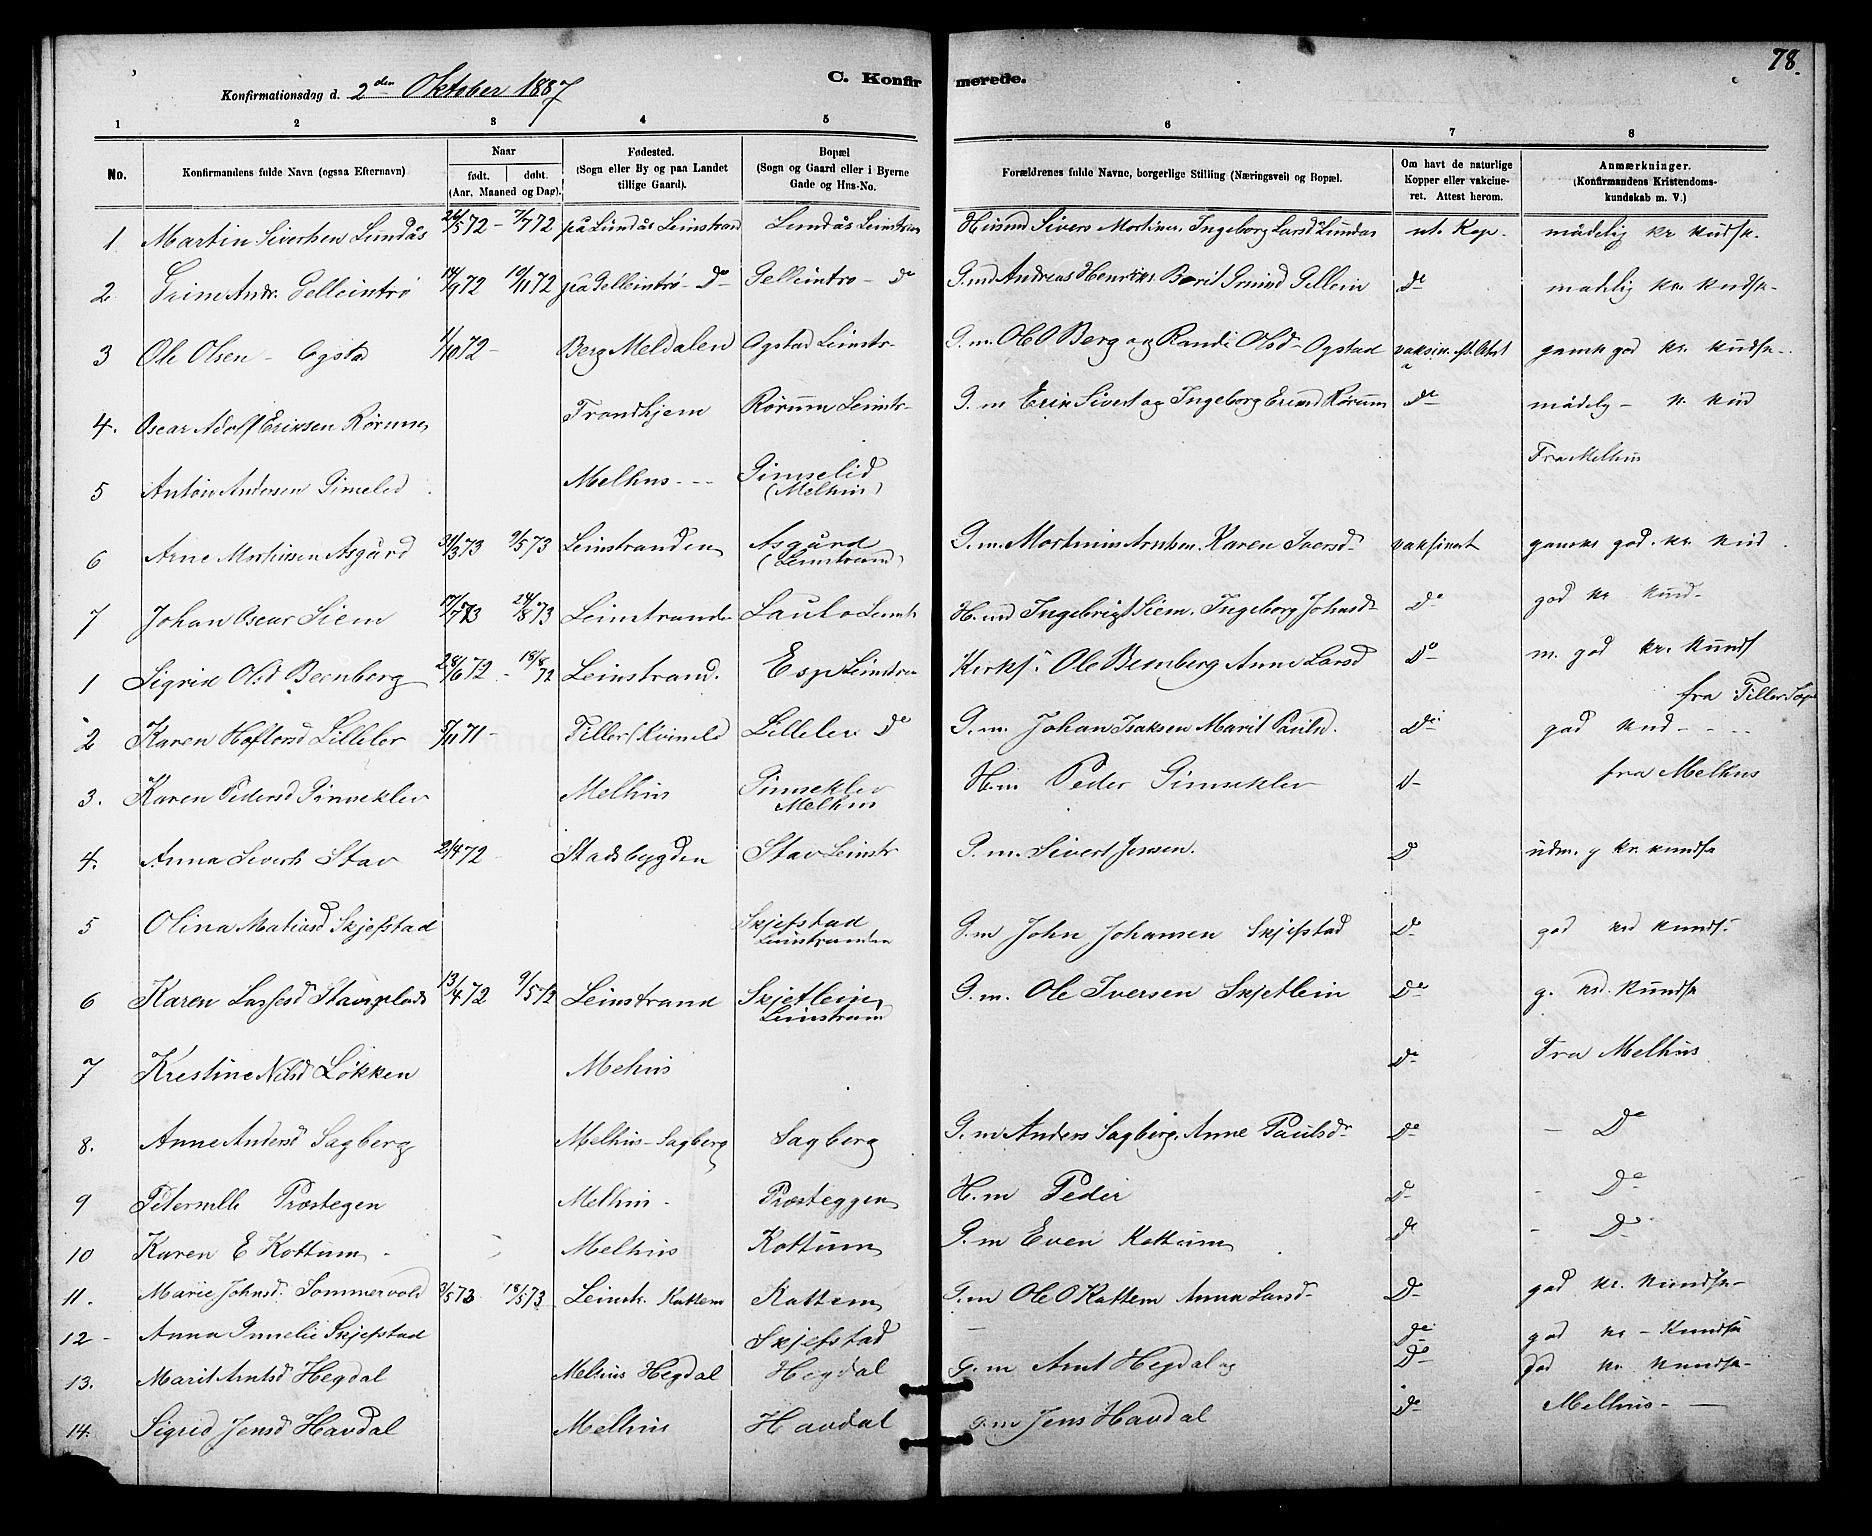 78.
C. Konfirmerede.
Konfirmationsdag d. 2den Oktober 1887
1 2 3 4 5 6 7 8
No.
Konfirmandens fulde Navn (ogsaa Efternavn)
Naar
født. døbt.
(Aar. Maaned og Dag).
Fødested.
(Sogn eller By og paa Landet
tillige Gaard).
Bopæl
(Sogn og Gaard eller i Byerne
Gade og Hus-No.
Forældrenes fulde Navne, borgerlige Stilling (Næringsvei) og Bopæl.
Om havt de naturlige
Kopper eller vakcine-
ret. Attest herom.
Anmærkninger.
(Konfirmandens Kristendoms-
kundskab m. V.)
1 Martin Siverhsen Lundås 26/5 72 - 7/7 72 på Lundås Leinstrand Lundås Husmd Sivert Ingeborg Larsd Lundås nt. Kop. mådelig kr kndsk.
2 Trine Andr. Gelleintrø 14/9 72 10/11 72 på Gelleintrø - Do Gelleintrø - Do G.md Andreas Berit Gellein Do madelig kr. kndsk-
3 Ole Olsen - Ogstad 1/10 72 - Berg Meldalen Ogstad Leinstr- G.m. Ole O Berg og Randi Olsd - Ogstad ganske god kr. kndsk-
4. Oscar Adolf Eriksen Rørum Trondhjem Rørum Leinstr- G.m Erik Sivert og Ingeborg Rørum Do mådelig - kr. knd
5 Anton Andersen Gimselid Melhus - - - Gimselid
(Melhus)
Fra Melhus
6 Arne Martinsen Asgård 31/3 73 9/5 73 Leinstranden Asgård
(Leinstrand)
G.m. Karen Iversd- vaksinert ganske god. kr. knd
7 Johan Oscar Siem 17/7 73 24/8 73 Leinstranden H.md Ingebrigt Siem. Ingeborg Johnsd Do god kr knd-
1 Sigrid Olsd Bernberg 28/6 72 - 18/8 72 Leinstrand. Esp Leinstran Kirks. Ole Bernberg Anne Larsd Do m. god kr. kunds
fra Tiller Sogn
2 Karen Lilleler 5/11 71 - Tiller Lilleler Do G.m. Johan Isaksen Marit Paulsd. Do god knd - - - -
3. Karen Pedersd Gimseklev Melhus Gimseklev
Melhus
H.m Peder Gimseklev D- fra Melhus
4. Anna Siverts Stav 2/4 72 - Stadsbygden Stav Leinstr G.m. Sivert Jensen. D udm. g kr. kundsk
5 Olina Matiasd Skjefstad Skjefstad
Leinstranden
G.m John Johansen Skjefstad Do god krd kunds-
6 Karen 13/4 72 9/5 72 Leinstrand Skjetlein
Leinstrand
G.m. Ole Iversen Skjetlein Do g. krd. kundsk
7 Krestine Nilsd Løkken Mehus Do Fra Melhus
8. Anne Andersd Sagberg Melhus - Sagberg Sagberg G.m Anders Sagberg. Anne Paulsdr Do - Do
9 Prøstegen Melhus - Prøsteggen H.m Peder Do - Do
10 Karen E Kottum - Melhus Kottum G.m Even Kottum Do - Do
11. Marie Johnsd. Sommervold 3/5 73 18/5 73 Leinstr. Kattem Kattem G.m Ole O Kattem Anna Larsd- Do god kr. kundsk-
12 - Anna Skjefstad Skjefstad - Do god kr - kundsk
13. Marit Arntsd Hegdal Melhus Hegdal Hegdal G.m Arnt Hegdal og Do god kr kundsk-
14. Sigrid Jensd Havdal Melhus Havdal G.m Jens Havdal Do Melhus - —